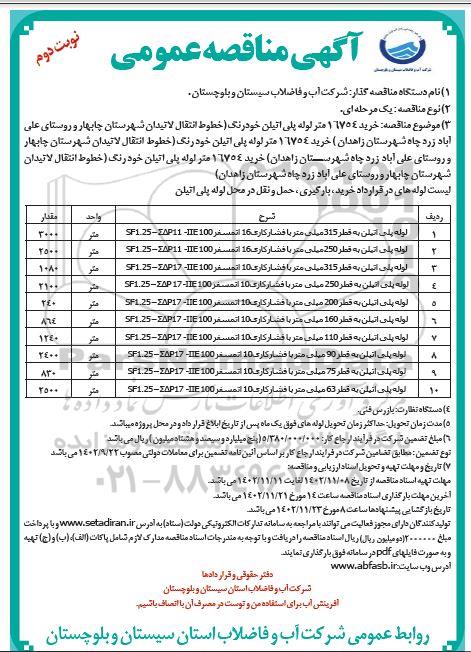 آگهی مناقصه عمومی
نوبت دوم
شرکت آب و فاضلاب سیستان و بلوچستان
۱) نام دستگاه مناقصه گذار: شرکت آب و فاضلاب سیستان و بلوچستان .
۲) نوع مناقصه : یک مرحله ای.
۳) موضوع مناقصه: خرید ۱۶۷۵۴ متر لوله پلی اتیلن خودرنگ (خطوط انتقال لاتیدان شهرستان چابهار و روستای علی
آباد زرد چاه شهرستان زاهدان) خرید ۱۶۷۵۴ متر لوله پلی اتیلن خودرنگ (خطوط انتقال لاتیدان شهرستان چابهار
و روستای علی آباد زرد چاه شهرستان زاهدان) خرید ۱۶۷۵۴ متر لوله پلی اتیلن خودرنگ (خطوط انتقال لاتیدان
شهرستان چابهار و روستای علی آباد زرد چاه شهرستان زاهدان)
لیست لوله های در قرارداد خرید ، بارگیری ، حمل و نقل در محل لوله پلی اتیلن
ردیف شرح واحد مقدار
۱ لوله پلی اتیلن به قطر 315میلی متر با فشارکاری16 اتمسفر SF1.25–ΣΔP11 -IIE100 متر ۳۰۰۰
۲ لوله پلی اتیلن به قطر 250میلی متر با فشارکاری16 اتمسفر SF1.25–ΣΔP11 -IIE100 متر ۲۵۰۰
۳ لوله پلی اتیلن به قطر 315میلی متر با فشارکاری10 اتمسفر SF1.25–ΣΔP17 -IIE100 متر ۱۰۸۰
۴ لوله پلی اتیلن به قطر 250 میلی متر با فشارکاری10 اتمسفر SF1.25–ΣΔP17 -IIE100 متر ۲۱۰۰
۵ لوله پلی اتیلن به قطر 200 میلی متر با فشارکاری10 اتمسفر SF1.25–ΣΔP17 -IIE100 متر ۲۴۰
۶ لوله پلی اتیلن به قطر 160 میلی متر با فشارکاری10 اتمسفر SF1.25–ΣΔP17 -IIE100 متر ۸۶۴
۷ لوله پلی اتیلن به قطر 110 میلی متر با فشارکاری10 اتمسفر SF1.25–ΣΔP17 -IIE100 متر ۱۲۴۰
۸ لوله پلی اتیلن به قطر 90 میلی متر با فشارکاری10 اتمسفر SF1.25–ΣΔP17 -IIE100 متر ۲۴۰۰
۹ لوله پلی اتیلن به قطر 75 میلی متر با فشارکاری10 اتمسفر SF1.25–ΣΔP17 -IIE100 متر ۸۳۰
۱۰ لوله پلی اتیلن به قطر 63 میلی متر با فشارکاری10 اتمسفر SF1.25–ΣΔP17 -IIE100 متر ۲۵۰۰
۴) دستگاه نظارت: بازرس فنی.
۵) مدت زمان تحویل: حداکثر زمان تحویل لوله های فوق یک ماه پس از تاریخ ابلاغ قرار داد و در محل پروژه میباشد.
۶) مبلغ تضمین شرکت در فرآیند ارجاع کار: ۵/۳۸۰/۰۰۰/۰۰۰ (پنج میلیارد و سیصد و هشتاد میلیون ) ریال می باشد
نوع تضمین : مطابق تضامین شرکت در فرایند ارجاع کار بر اساس آئین نامه تضمین برای معاملات دولتی مصوب ۱۴۰۲/۹/۲۲ می باشد
۷) تاریخ و مهلت تهیه و تحویل اسناد ارزیابی و مناقصه:
مهلت تهیه اسناد مناقصه از تاریخ ۱۴۰۲/۱۱/۰۸ لغایت ۱۴۰۲/۱۱/۱۱ می باشد.
آخرین مهلت بارگذاری اسناد مناقصه ساعت ۱۴ مورخ ۱۴۰۲/۱۱/۲۱ می باشد.
تاریخ بازگشایی پیشنهادها ساعت ۸ مورخ ۱۴۰۲/۱۱/۲۳ می باشد.
تولید کنندگان دارای مجوز فعالیت می توانند با مراجعه به سامانه تدارکات الکترونیکی دولت (ستاد) به آدرس www.setadiran.ir و با پرداخت
مبلغ ۲۰۰۰۰۰۰ (دو میلیون ریال) ریال اسناد مناقصه را دریافت و با توجه به مندرجات اسناد مناقصه مدارک لازم شامل پاکات (الف)، (ب) و (ج) تهیه
و به صورت فایلهای pdf در سامانه فوق بارگذاری نمایند.
آدرس وب سایت: www.abfasb.ir
دفتر حقوقی و قرار دادها
شرکت آب و فاضلاب استان سیستان و بلوچستان
آفرینش آب برای استفاده من و توست در مصرف آن با انصاف باشیم.
روابط عمومی شرکت آب و فاضلاب استان سیستان و بلوچستان